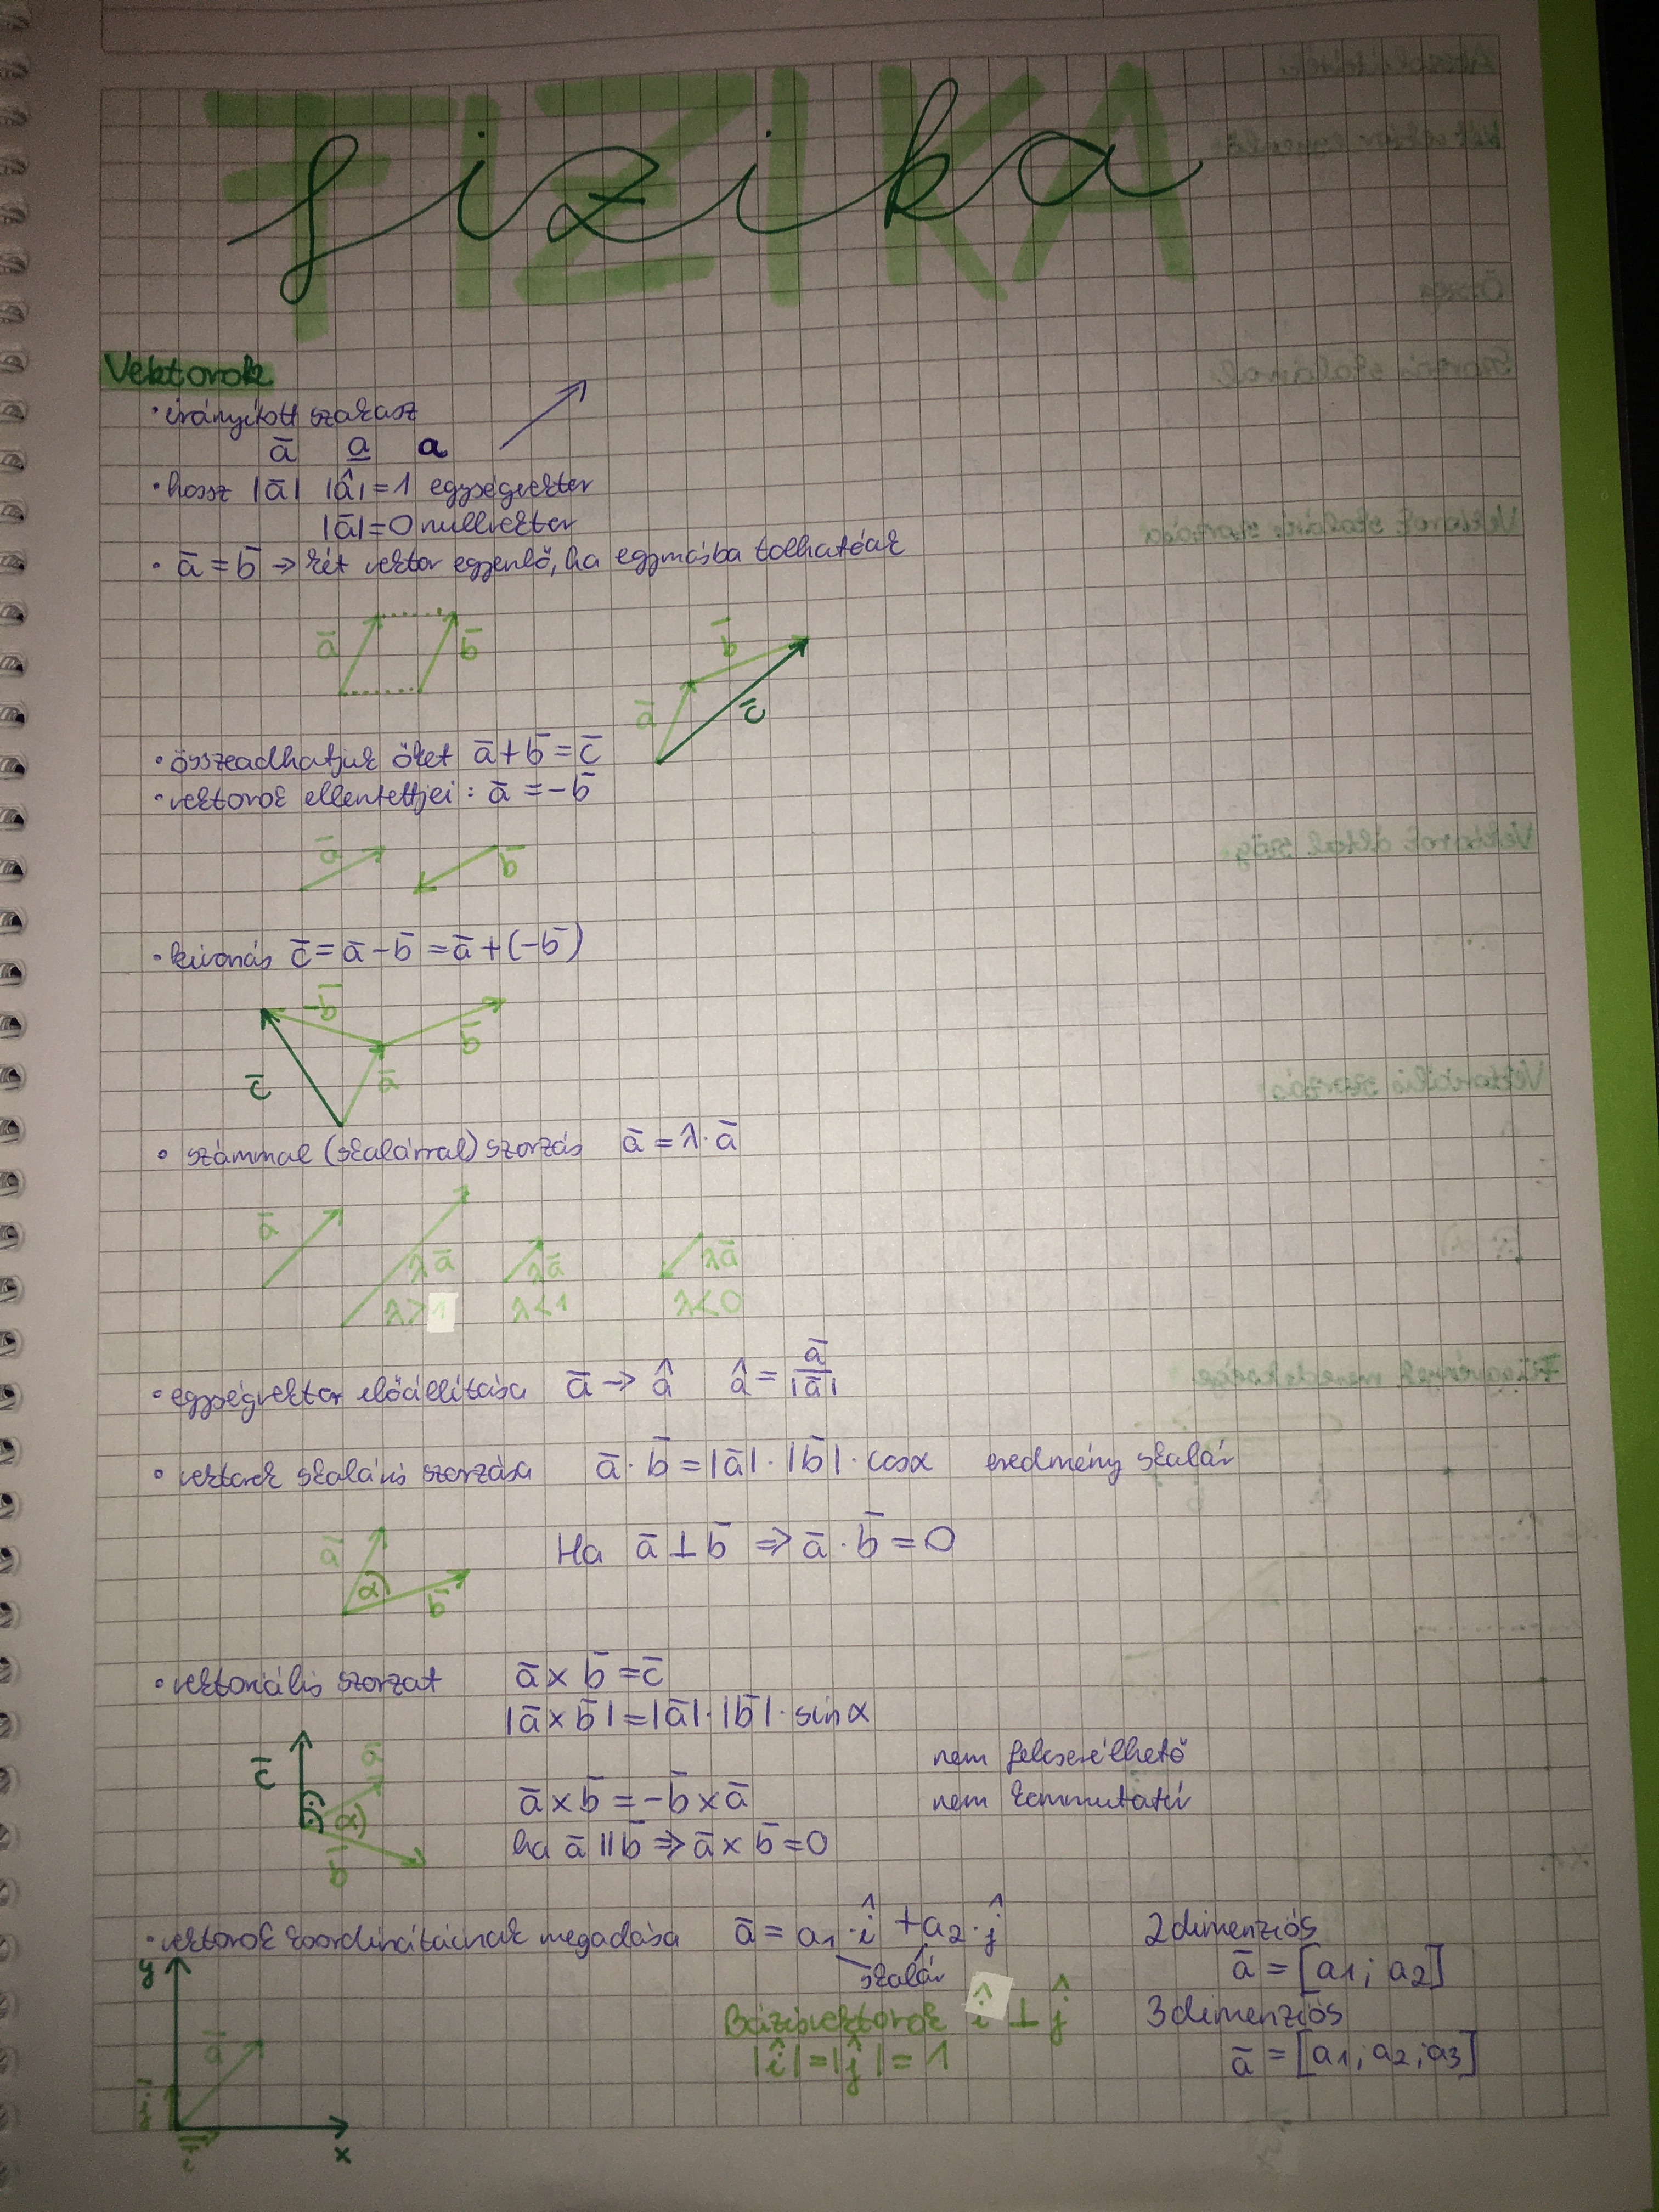 FIZIKA
fizika
Vektorok
• irányított szakasz
a̅ a̲ a
• hossz |a̅| |â|=1 egységvektor
|a̅|=0 nullvektor
• a̅ = b̅ → két vektor egyenlő, ha egymásba tolhatóak
a̅ b̅
a̅ b̅ c̅
• összeadhatjuk őket a̅+b̅=c̅
• vektorok ellentettjei: a̅ = -b̅
a̅ b̅
• kivonás c̅ = a̅ - b̅ = a̅ + (-b̅)
-b̅ b̅
c̅ a̅
• számmal (skalárral) szorzás a̅ = λ · a̅
a̅ λa̅ λa̅ λa̅
λ>1 λ<1 λ<0
• egységvektor előállítása a̅ → â â = a̅/|a̅|
• vektorok skaláris szorzása a̅ · b̅ = |a̅| · |b̅| · cosα eredmény skalár
Ha a̅ ⊥ b̅ ⇒ a̅ · b̅ = 0
a̅ α b̅
• vektoriális szorzat a̅ × b̅ = c̅
|a̅ × b̅| = |a̅| · |b̅| · sinα
nem felcserélhető
c̅ a̅
a̅ × b̅ = -b̅ × a̅ nem kommutatív
α
ha a̅ || b̅ ⇒ a̅ × b̅ = 0
b̅
• vektorok koordinátáinak megadása a̅ = a1 · î + a2 · ĵ 2 dimenziós
y szalár a̅ = [a1; a2]
Bázisvektorok î ⊥ ĵ 3 dimenziós
a̅ |î| = |ĵ| = 1 a̅ = [a1; a2; a3]
x